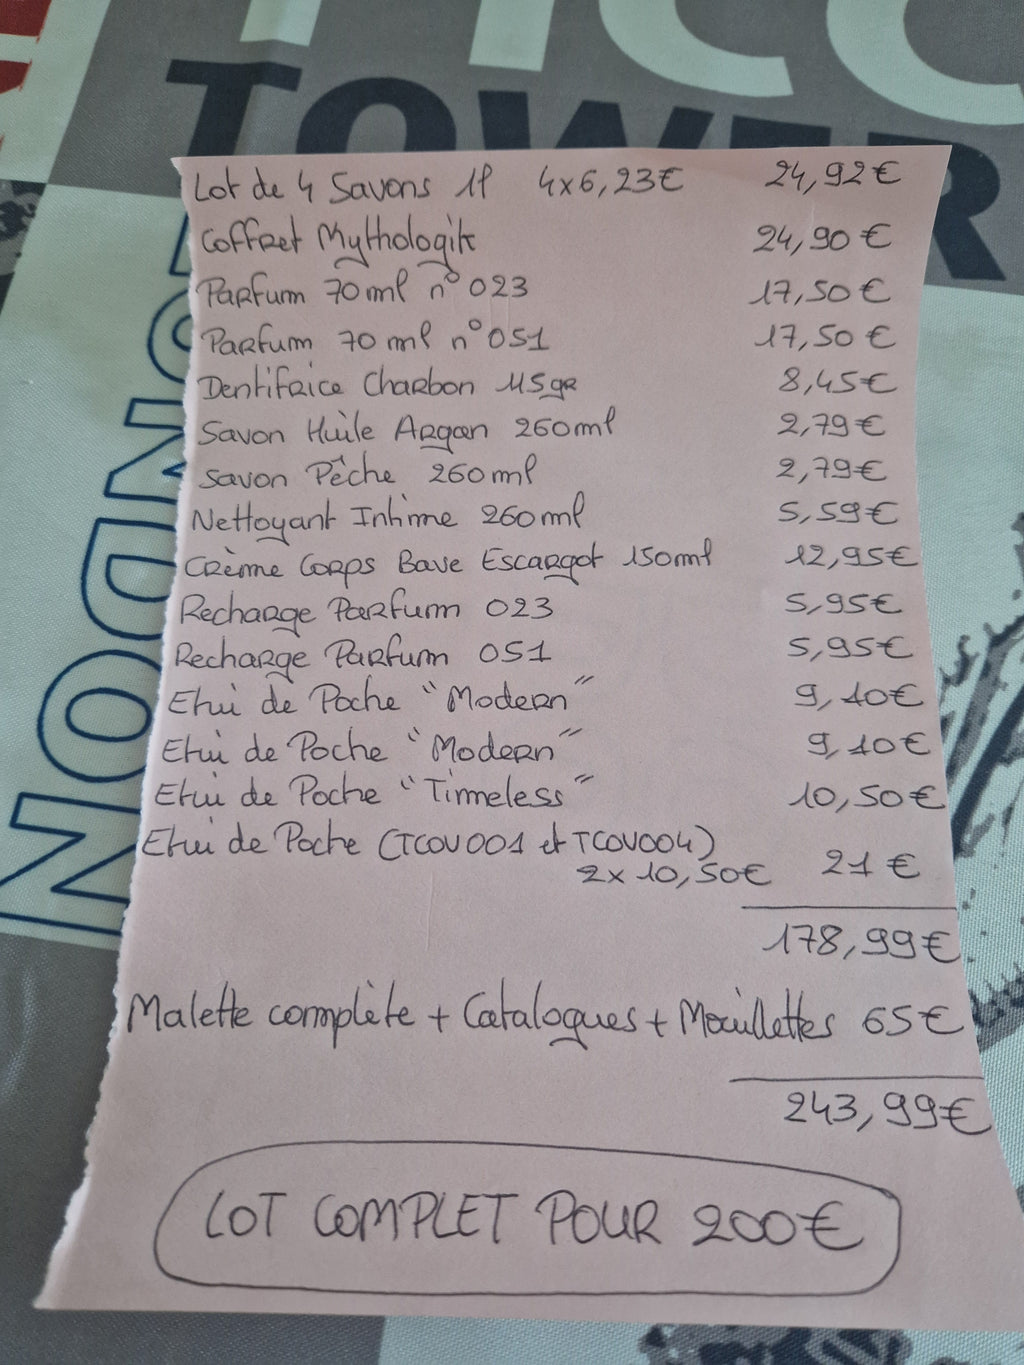 TOWER
LONDON
Lot de 4 Savons 1l 4x6,23€ 24,92€
Coffret Mythologik 24,90€
Parfum 70ml n°023 17,50€
Parfum 70ml n°051 17,50€
Dentifrice Charbon 115gr 8,45€
Savon Huile Argan 260ml 2,79€
Savon Pêche 260ml 2,79€
Nettoyant Intime 260ml 5,59€
Crème Corps Bave Escargot 150ml 12,95€
Recharge Parfum 023 5,95€
Recharge Parfum 051 5,95€
Etui de Poche "Modern" 9,10€
Etui de Poche "Modern" 9,10€
Etui de Poche "Timeless" 10,50€
Etui de Poche (TCOV001 et TCOV004)
2x10,50€ 21€
178,99€
Malette complète + Catalogues + Mouillettes 65€
243,99€
LOT COMPLET POUR 200€